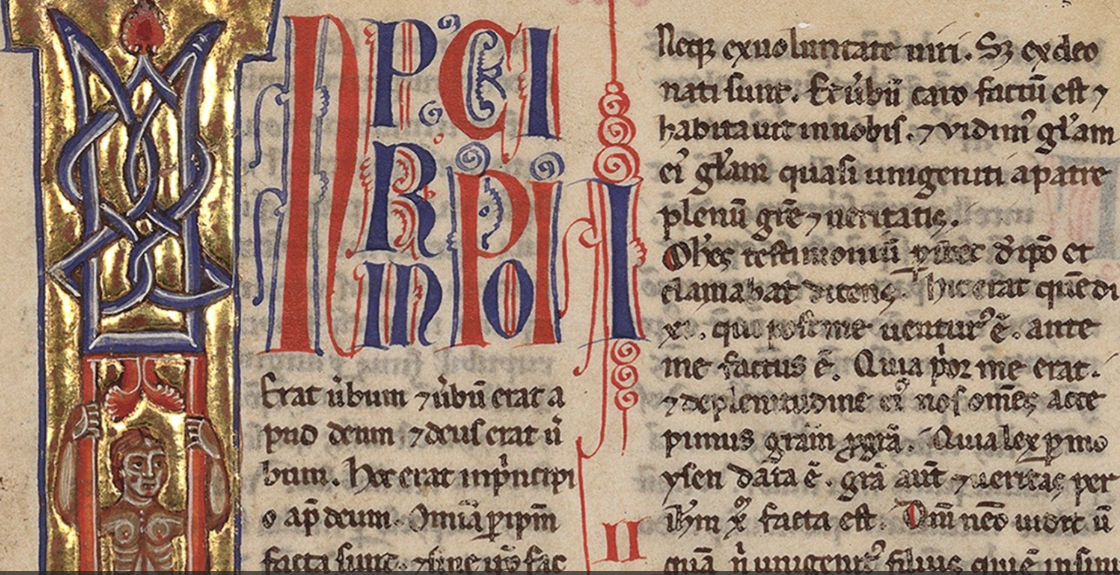 I N P CI
R PI
IN O
Erat u̓bum ⁊ u̓bū erat a
pud deum ⁊ deus erat u̓
bum. Hoc erat inpͥncipi
o ap̄ deum. Omīa ꝑ ipm̄
facta sunt. ⁊ sine fac
I
II
Neqꝫ ex uoluntate uiri. Sꝫ ex deo
nati sunt. Et u̓bū caro factū est ⁊
habitauit in nobis. ⁊ vidimꝰ gl̄am
eiꝰ gl̄am quasi unigeniti a patre
plenū gr̄e ⁊ ueritatis.
Ioh̄es testimoniū d̓ ipō et
clamabat dicens. hic erat quē di
xi. qui post me uenturꝰ ē. ante
me factus ē. Quia pͥor me erat.
⁊ de plenitudine eiꝰ nos om̄es acce
pimus grām ꝓ grā. Quia lex ꝑ mo
ysen data ē. grā aut̄ ⁊ ueritas per
ih̄m xp̄ facta est. Dm̄ nēo uidit u̓
quā nͥ unigenitꝰ filius qui ē in sinu